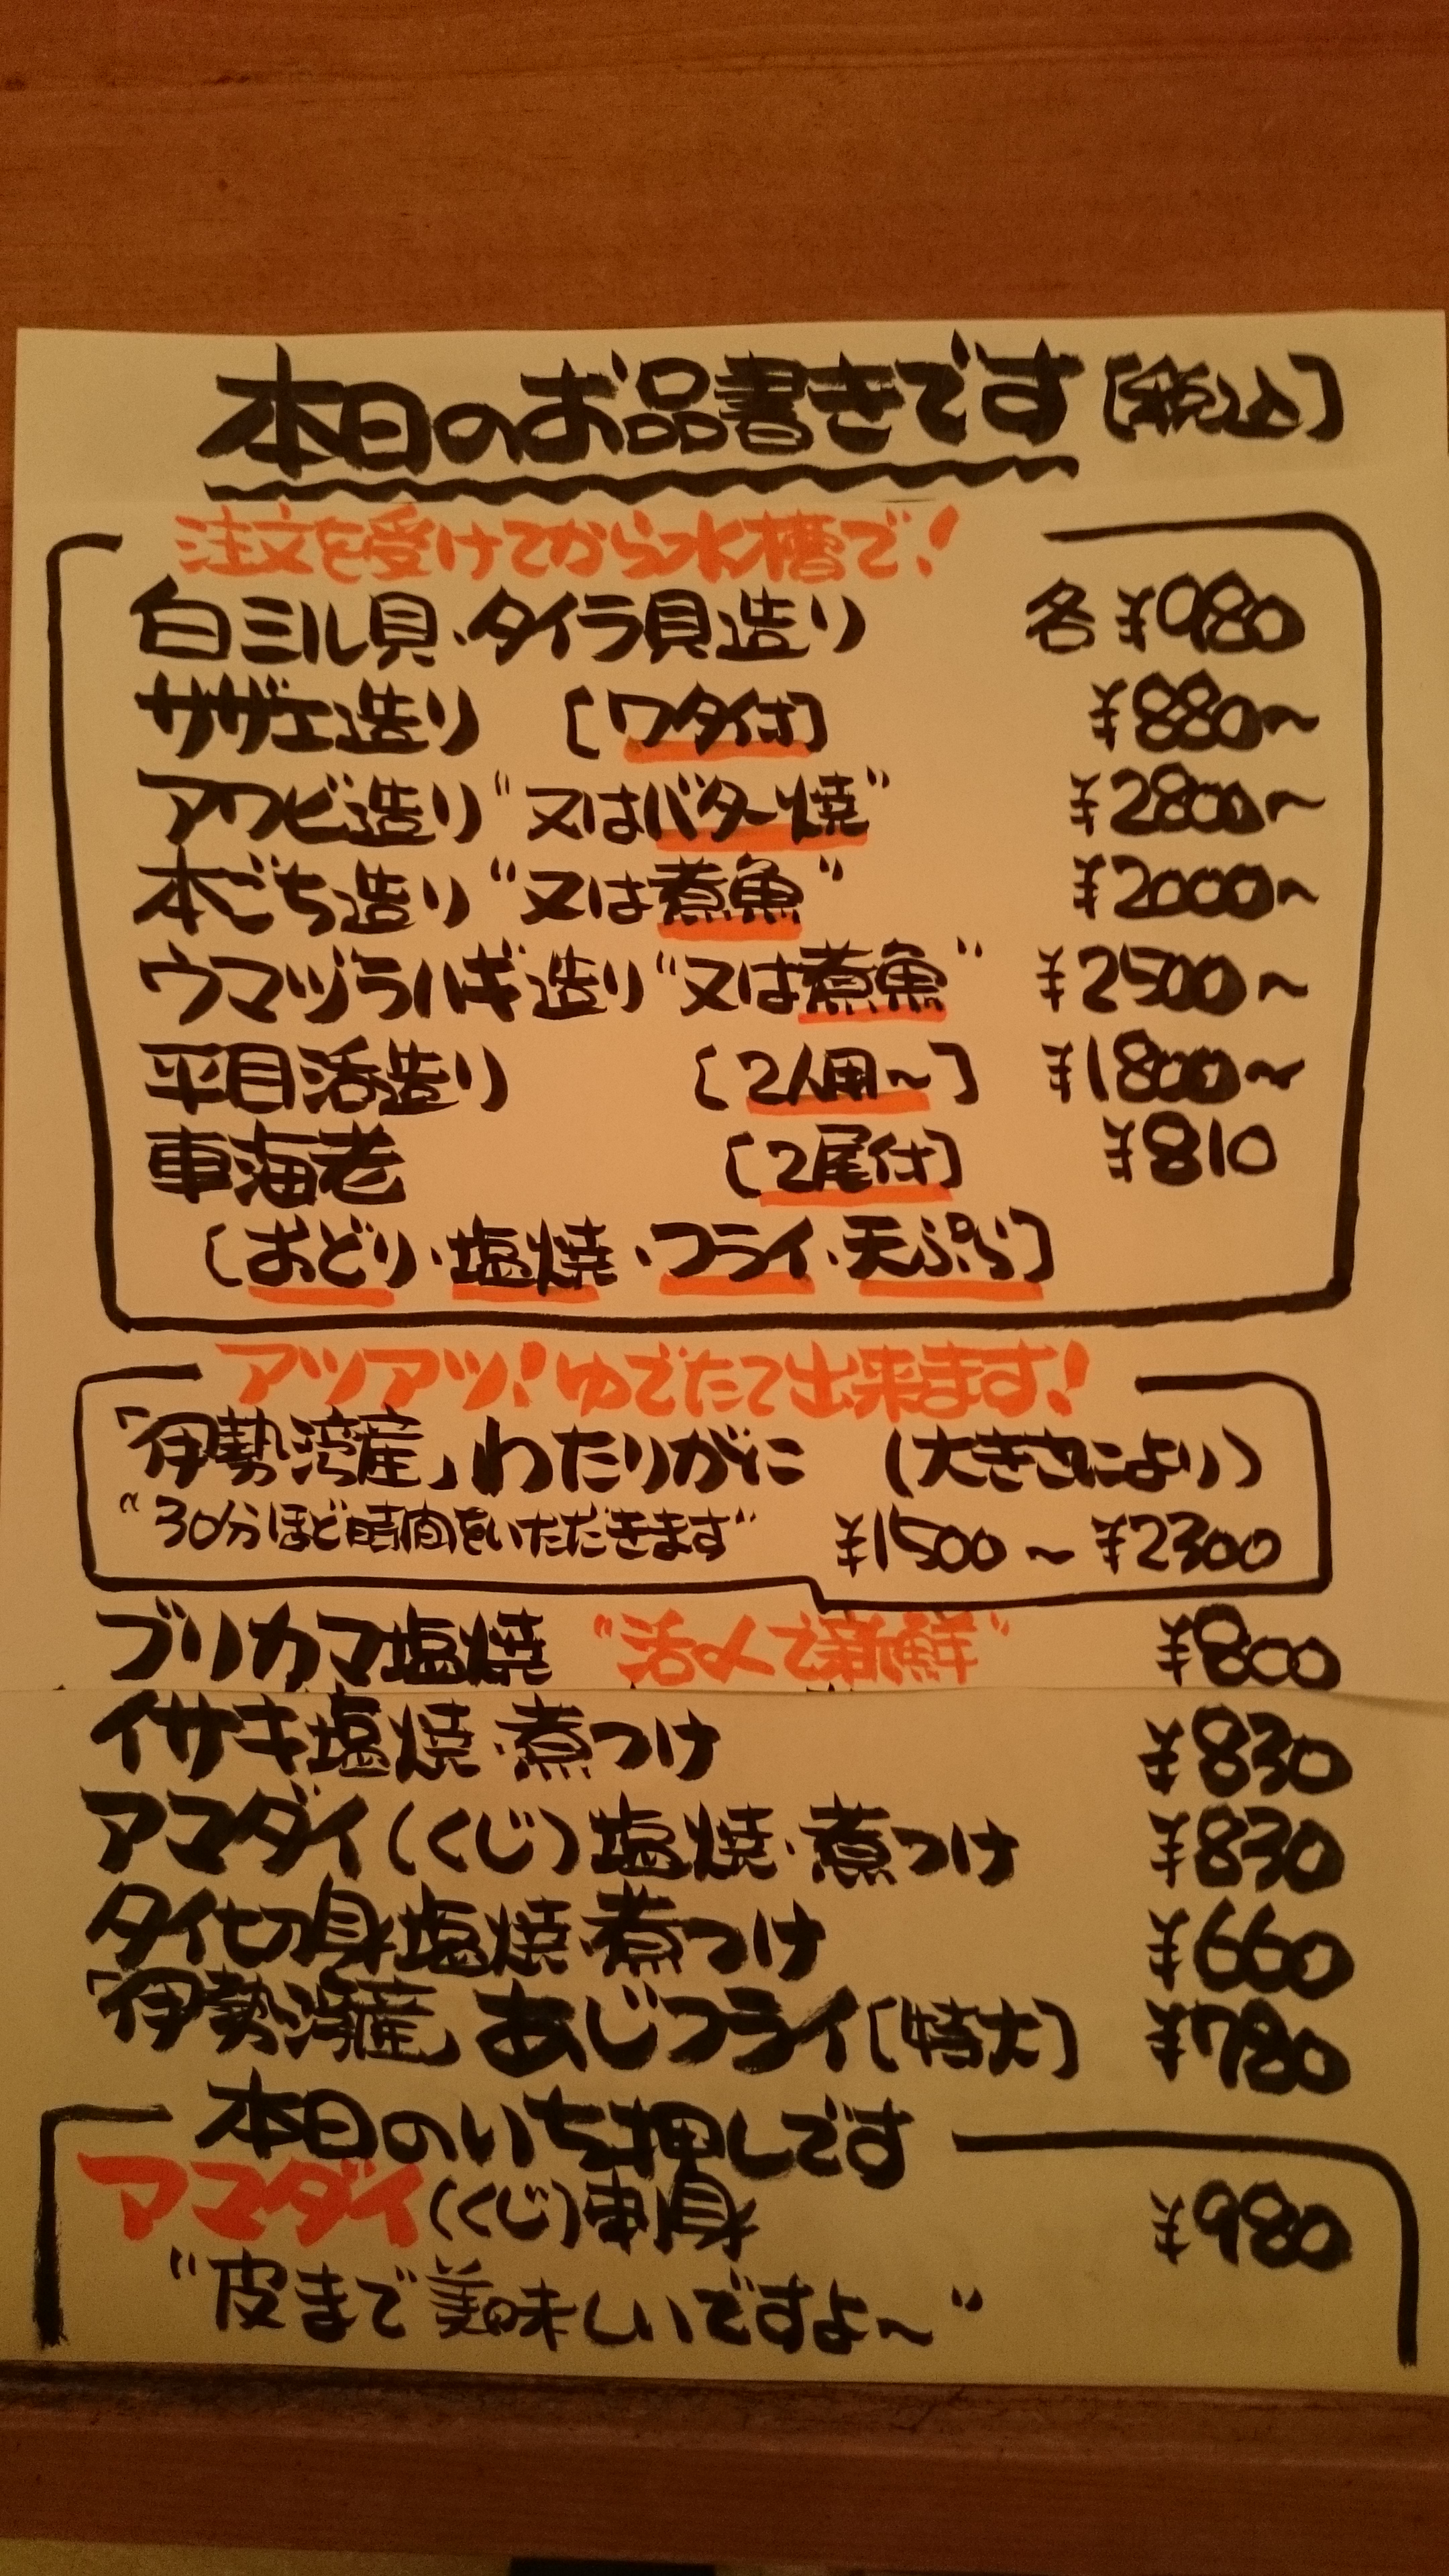 本日のお品書きです [税込]
注文を受けてから水槽で!
白ミル貝・タイラ貝造り 各¥980
サザエ造り [ワタ付] ¥880~
アワビ造り"又はバター焼" ¥2800~
本ごち造り"又は煮魚" ¥2000~
ウマヅラハギ造り"又は煮魚" ¥2500~
平目活造り [2人用~] ¥1800~
車海老 [2尾付] ¥810
[おどり・塩焼・フライ・天ぷら]
アツアツ!ゆでたて出来ます!
「伊勢湾産」わたりがに (大きさにより)
"30分ほど時間をいただきます" ¥1500~¥2300
ブリカマ塩焼 "活〆で新鮮" ¥800
イサキ塩焼・煮つけ ¥830
アマダイ(くじ)塩焼・煮つけ ¥830
タイ切身塩焼・煮つけ ¥660
「伊勢湾産」あじフライ[特大] ¥780
本日のいち押しです
アマダイ(くじ)刺身 ¥980
"皮まで美味しいですよ~"